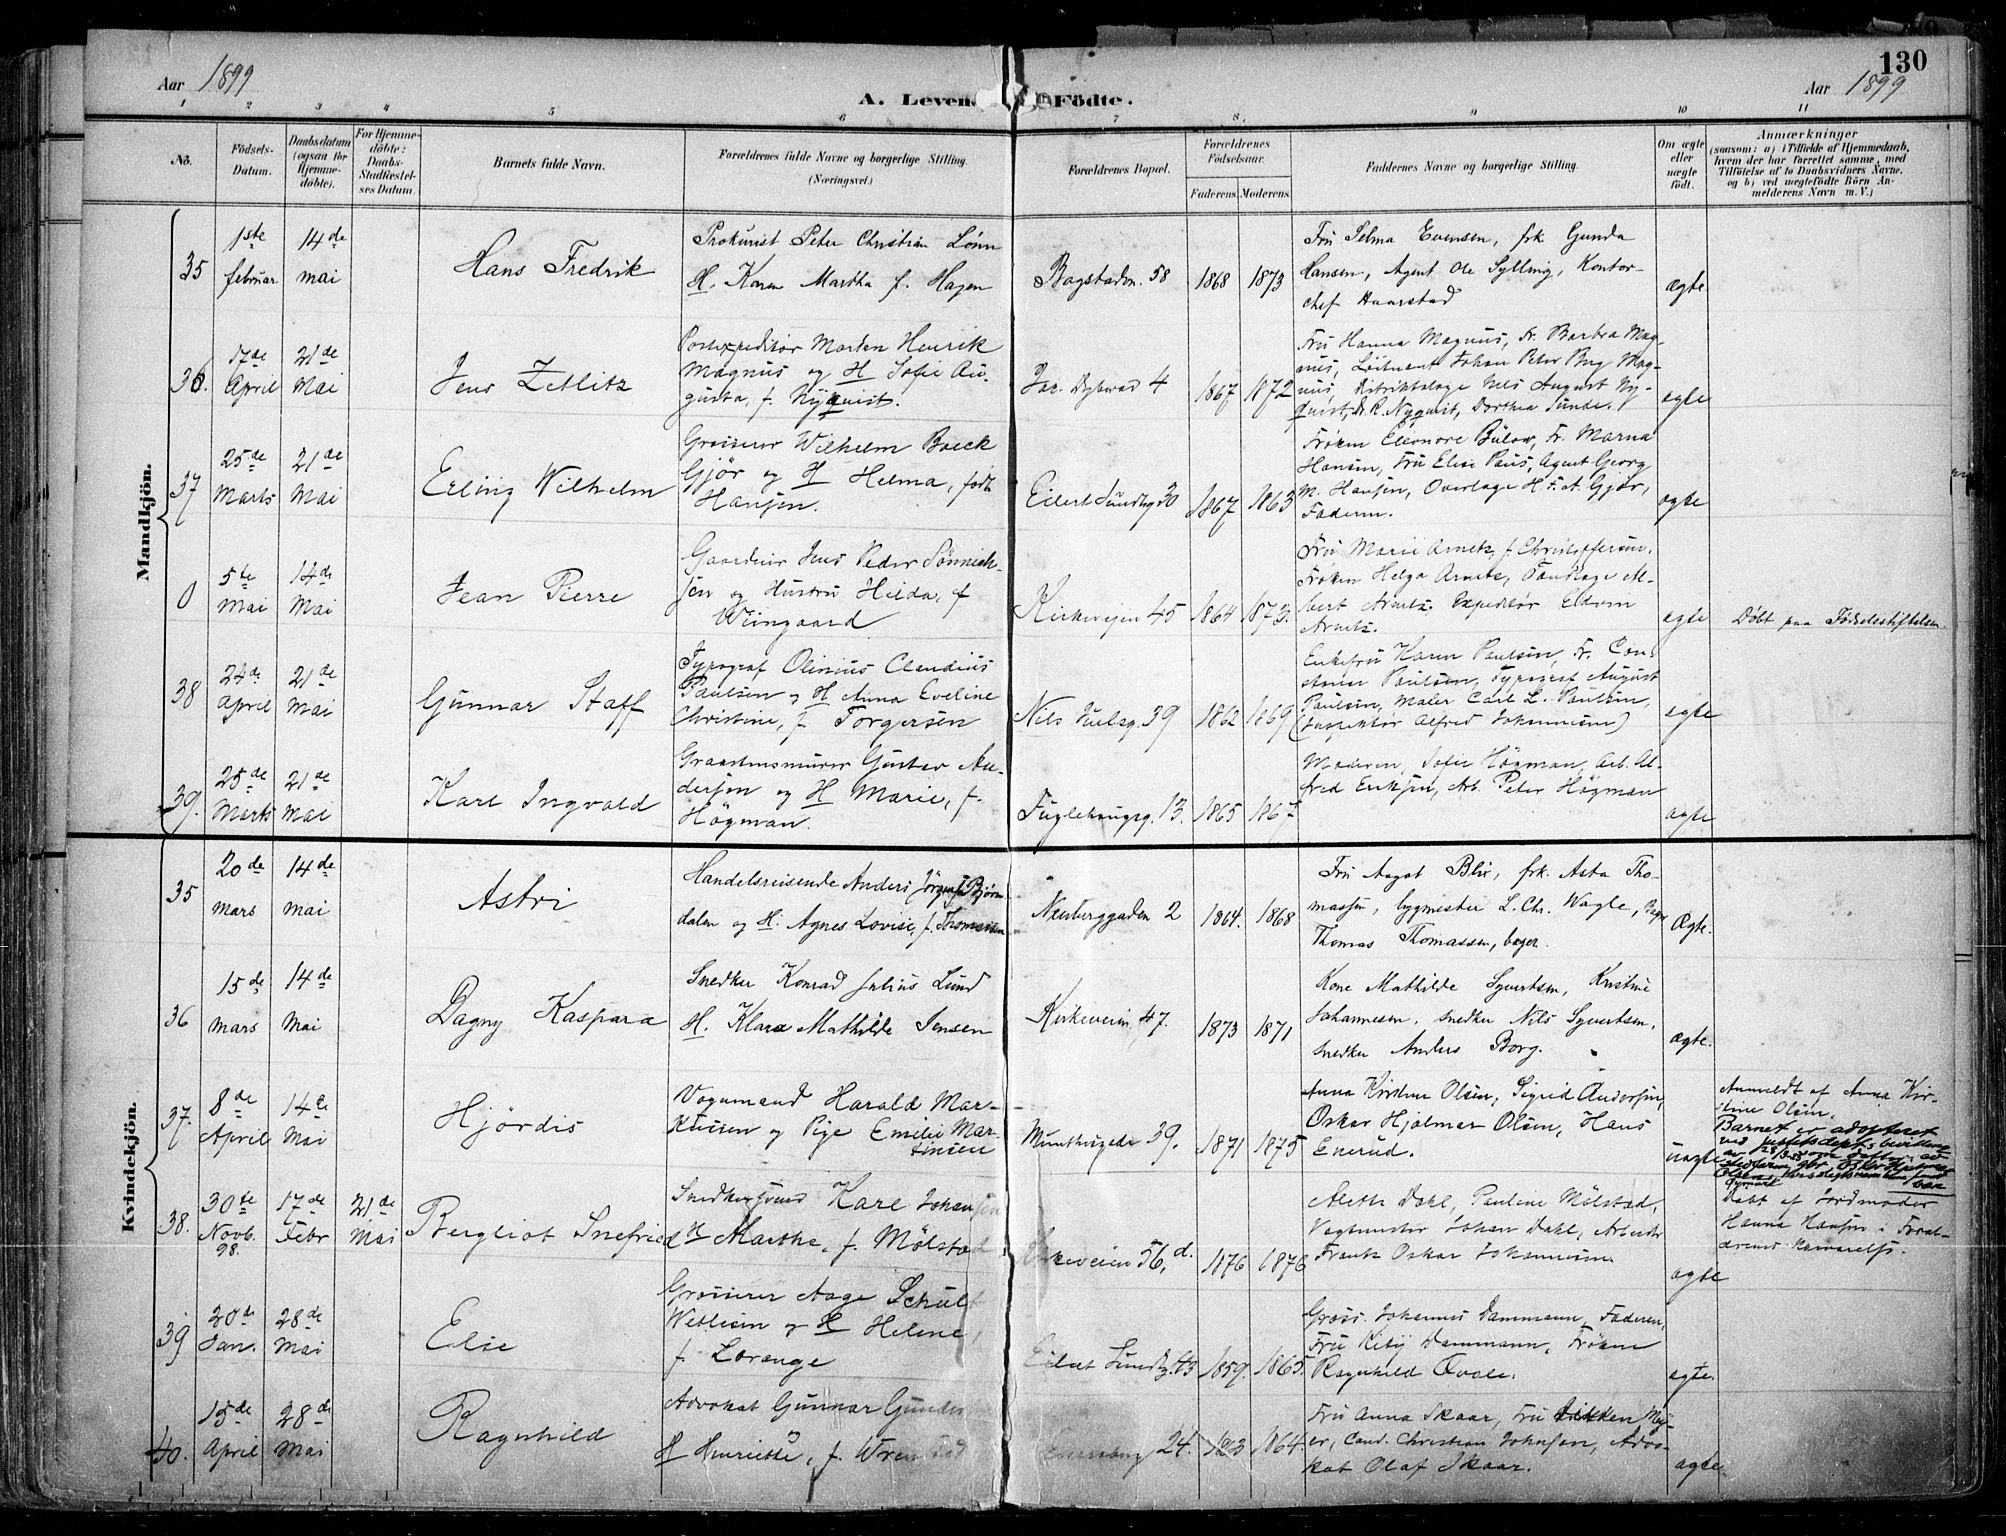 130
Aar 1899
A. Levende Födte.
Aar 1899
1 2 3 4 5 6 7 8. 9 10 11
No.
Födsels-
Datum.
Daabsdatum
(ogsaa for
Hjemme-
döbte).
For Hjemme-
döbte:
Daabs-
Stadfæstel-
ses Datum.
Barnets fulde Navn.
Forældrenes fulde Navne og borgerlige Stilling.
(Næringsvei.)
Forældrenes Bopæl.
Forældrenes
Födselsaar.
Faderens. Moderens.
Faddernes Navne og borgerlige Stilling.
Om ægte
eller
uægte
födt.
Anmærkninger
(saasom: a) i Tilfælde af Hjemmedaab,
hvem der har forrettet samme, med
Tilföielse af to Daabsvidners Navne,
og b) ved uægtefödte Börn An-
melderens Navn m. V.)
Mandkjön.
35
1ste
februar
14de
mai
Hans Fredrik
Prokurist Peter Christian Lönn
H. Karen Martha f. Hagen
Bogstadv. 58
1868 1873
Fru Selma Evensen, frk Gunda
Hansen, Agent Ole Sylling, Kontor-
chef Haarstad
ægte
36.
17de
April
21de
Mai
Jens Zetlitz
Postexpeditör Morten Henrik
Magnus og H Sofie Au-
gusta, f. Nyquist.
4
1867 1872
Fru Hanna Magnus, Fr. Barbra Mag-
nus, Löitnant Johan Peter Mag-
nus, Distriktslæge Nels August Ny-
quist, Nyquist, Dorthea
ægte
37
25de
Marts
21de
Mai
Erling Wilhelm
Grosserer Wilhelm Boeck
Gjör og H Helma, födt
Hansen.
Eilert Sundtsg 30
1867 1863
Fröken Eleonore Bülow, Fr. Marna
Hansen, Fru Elise Paus, Agent Georg
M. Hansen, Overlæge H. F. A. Gjör,
Faderen.
ægte
0
5te
Mai
14de
Mai
Jean Pierre
Gaardeier Jens Peder Sönnich-
sen og Hustru Hilda, f
Wiingaard
Kirkevejen 45
1864 1873.
Fru Marie Arnetz, f. Christoffersen,
Fröken Helga Arnetz, Tandlæge Al-
bert Arnetz, Expeditör Edvin
Arnetz.
ægte
Döbt paa Födselsstiftelsen
38
24de
April
21de
Mai
Gunnar Staff
Typograf Olinius Claudius
Paulsen og H Anna Eveline
Christine, f Torgersen
Nils Juelsg. 39
1862 1869
Enkefru Karen Paulsen, Fr. Con-
stance Paulsen, Typograf August
Paulsen, Maler Carl L. Paulsen,
(Inspektör Alfred Johannesen)
ægte
39.
25de
Marts
21de
Mai
Karl Ingvald
Graastensmurer Gustav An-
dersen og H Marie, f.
Högman.
Fuglehaugsg. 13.
1865 1867
Moderen, Sofie Högman, Arb. Al-
fred Eriksen, Arb. Peter Högman
ægte
Kvindekjön.
35
20de
mars
14de
mai
Astri
Handelsreisende Anders Jörgensen Björn
dalen og H. Agnes Lovise, f. Thomassen
Neubergsgaden 2
1864. 1868
Fru Aagot Blix, frk. Asta Tho-
massen, bygmester L. Chr. Wagle,
Thomas Thomassen, bager.
Ægte.
36
15de
mars
14de
mai
Dagny Kaspara
Snedker Konrad Julius Lund
H. Klara Mathilde Jensen
Kirkeveien 47.
1873 1871
Kone Mathilde Syvertsen, Kristine
Johannesen. snedker Nils Syvertsen,
snedker Anders Borg.
ægte.
37.
8de
April
14de
Mai
Hjördis
Vognmand Harald Mar-
kussen og Pige Emelie Mar-
tinsen
Munthesgade 39.
1871 1875
Anna Kirstine Olsen, Sigrid Andersen,
Oskar Hjalmar Olsen, Hans
Enerud.
uægte
Anmeldt af Anna Kir-
stine Olsen.
Barnet er adopteret
ved justisdept.s bevilling
38.
30te
Novb.
98.
17de
Febr
21de
Mai
Bergliot Snefried
Snedkersvend Karl Johansen
H Marthe, f. Mölstad
Kirkeveien 56,d.
1876 1876
Aleth Dahl, Pauline Mölstad,
Vagtmester Johan Dahl, Arbeider
Frantz Oskar Johannesen
ægte
Döbt af Jordmoder
Hanna Hansen i Foræl-
drenes Nærværelse.
39
20de
Jan.
28de
Mai
Else
Grosserer Aage Schult
Wetlesen og H Helene,
f. Lorange
Eilert Sundtsg. 43
1859. 1865.
Gross. Johannes Dammann, Faderen,
Fru Kitty Dammann, Fröken
Ragnhild Qvale.
ægte.
40.
15de
April
28de
Mai
Ragnhild
Advokat Gunnar
H Henriette, f.
24.
1864.
Fru Anna Skaar, Fru Mey-
er, Cand. Christian Johnsen, Advo-
kat Olaf Skaar.
ægte